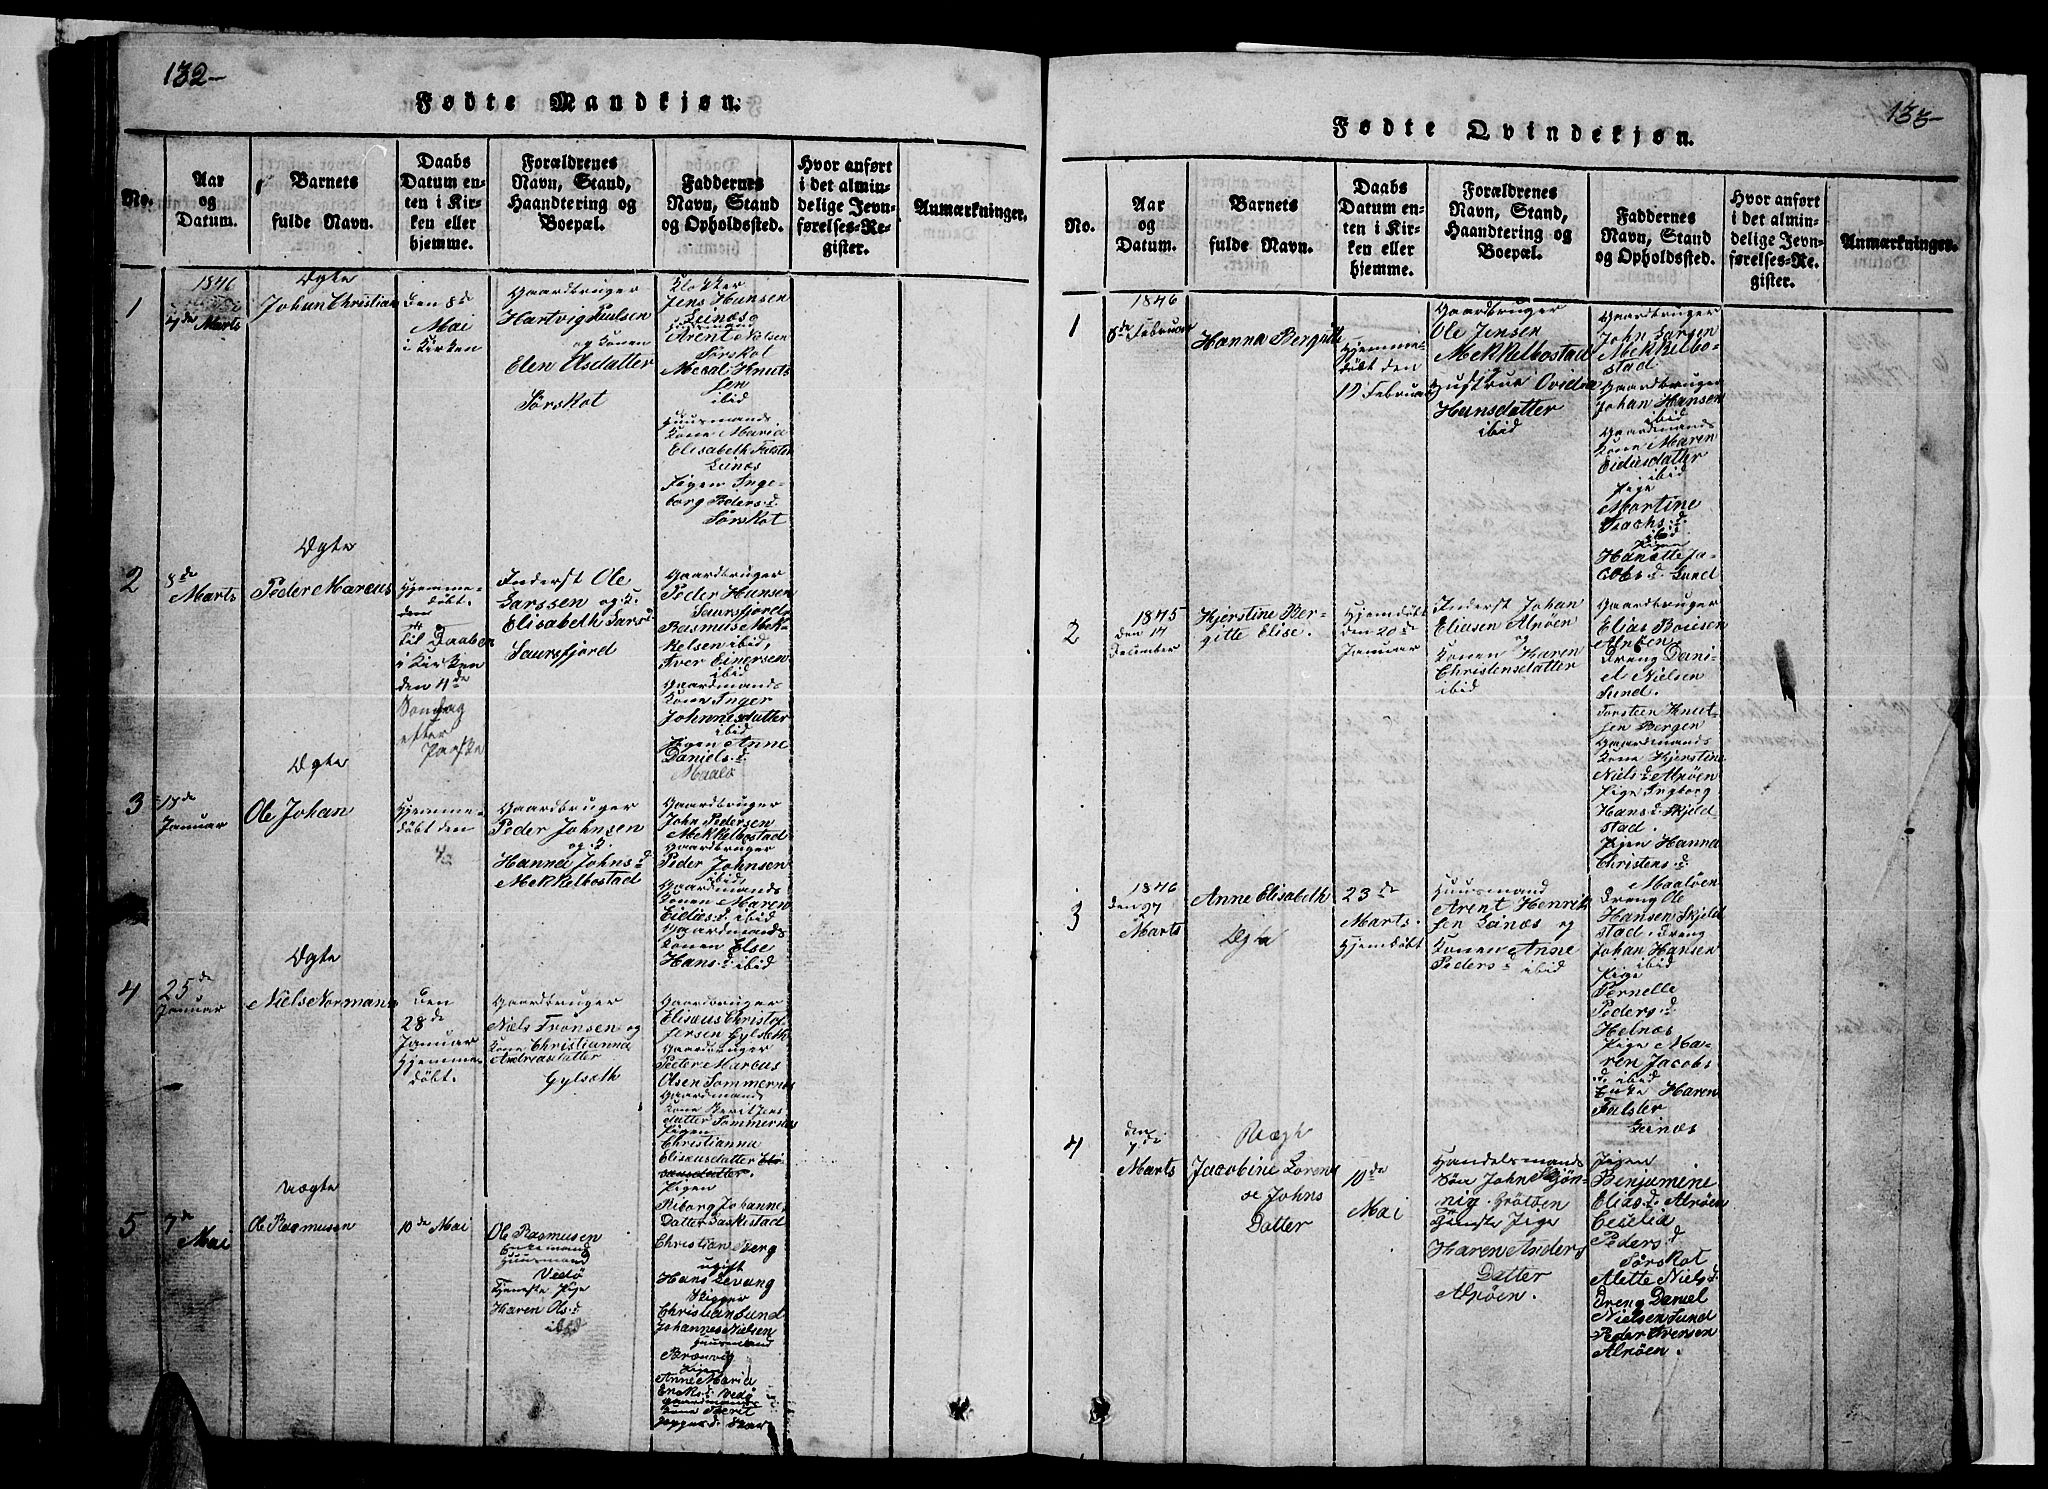 132-
Fødte Mandkjøn.
No.
Aar
og
Datum.
Barnets
fulde Navn.
Daabs
Datum en-
ten i Kir-
ken eller
hjemme.
Forældrenes
Navn, Stand,
Haandtering og
Boepæl.
Faddernes
Navn, Stand
og Opholdssted.
Hvor anført
i det almin-
delige Jevn-
førelses-Re-
gister.
Anmærkninger.
1
1846
4de Marts
Ægte
Johan Christian
den 8de
Mai
i Kirken
Gaardbruger
Hartvig Paulsen
og Konen
Elen Olsdatter
Sørskot
Klokker
Jens Hansen
Leinæs
Huusmand
Arent Nilsen
Sørskot
Knuts
sen
ibid
Huusmands
Kone Maria
Elisabeth Falster
Leinæs
Pigen Inge-
borg Peders. d.
Sørskot
2
8de
Marts
Ægte
Peder Marcus
Hjemme-
døbt.
den
til Daaben
i Kirken
den 4de
Søndag
efter
Paaske
Inderst Ole
Larssen og K.
Elisabeth Larsd
Laursfjord
Gaardbruger
Peder Hansen
Laursfjord
Rasmus Mek-
kelsen ibid,
Iver Einersen
ibid
Gaardmands
Kone Inger
Johnnesdatter
ibid
Pigen Anne
Daniels. d.
Maalø
3
18de
Januar
Ægte
Ole Johan
Hjemme-
døbt den
Gaardbruger
Peder Johnsen
og K.
Hanna Johns d
Mekkelbostad
Gaardbruger
John Pedersen
Mekkelbostad
Gaardbruger
Peder Johnsen
ibid,
Gaardmands
Konen Maren
Eidias. d. ibid
Gaardmands
Konen Else
Hans. d. ibid
4
25de
Januar
Ægte
Niels Normann
den
28de
Januar
Hjemme-
døbt.
Gaardbruger
Niels Tronsen og
Kone Christianna
Andreasdatter
Gylseth
Gaardbruger
Elisæus Christof-
fersen Gylseth
Gaardbruger
Peder Marcus
Olsen Sommernæs
Gaardmands
Kone Berit Jens
datter Sommernæs
Pigen
Christianna
Elisæusdatter
Pigen
Johannes
Datter
5
7de
Mai
Uægte
Ole Rasmusen
10de Mai
Ole Rasmusen
Enkemand
Huusmand
Vedø
Tjeneste Pige
Karen Ols. d
ibid
Christian Berg
ugift
Hans Levang
Skipper
Christiansund
Johannes Nielsen
Huusmand
Pigen
Anne Maria
Vedø
Gaardmands
Kone Berit
133-
Fødte Qvindekjøn.
No.
Aar
og
Datum.
Barnets
fulde Navn.
Daabs
Datum en-
ten i Kir-
ken eller
hjemme.
Forældrenes
Navn, Stand,
Haandtering og
Boepæl.
Faddernes
Navn, Stand
og Opholdssted.
Hvor anført
i det almin-
delige Jevn-
førelses-Re-
gister.
Anmærkninger.
1
1846
8de Februar
Hanna Bergitte
Hjemme-
døbt den
19 Februar
Gaardbruger
Ole Jensen
Mekkelbostad
Hustrue Ovidia
Hansdatter
ibid
Gaardbruger
John Larsen
Mekkelbo-
stad.
Gaardbruger
Johan Hansen
ibid
Gaardmands
Kone Maren
Eidiasdatter
ibid
Pige
Martine
Isachs. d.
ibid
Pigen
Hanette Ja-
cobs. d. Sund
2
1845
den 14
December
Kjerstine Ber-
gitte Elise.
Hjemdøbt
den 20de
Januar
Inderst Johan
Eliasen Alnøen
og
Konen Karen
Christensdatter
ibid
Gaardbruger
Elias Boiesen
Alnøen
Dreng Dani-
el Nielsen
Sund.
Torsteen Knut-
sen Bergen
Gaardmands
Kone Kjerstine
Niels. d. Alnøen
Pige Ingborg
Hans. d. Skjeld
stad.
Pigen Hanna
Christens. d.
Maaløen
3
1846
den 27
Marts
Anne Elisabeth
Ægte
23de
Marts.
Hjemdøbt
Huusmand
Arent Henrik
sen Leinæs og
Konen Anne
Peders d ibid
Dreng Ole
Hansen Skjeld
stad. Dreng
Johan Hansen
ibid
Pige
Pernelle
Peders. d.
Helnæs
Pige Ma-
ren Jacobs
d. ibid
Enke Karen
Falster
Leinæs
4
den
7de
Marts
Uægte
Jacobine Loren
se Johns
Datter
10de
Mai
Handelsmands
Søn John Skjøn-
nig. Grötøen
Tjeneste Pige
Karen Anders
Datter
Alnøen.
Pigen
Benjamine
Elias. d. Alnøen
Ceselia
Peders d
Sørskot
Alette Niels d.
Dreng Daniel
Nielsen Sund
Peder Arensen
Alnøen.